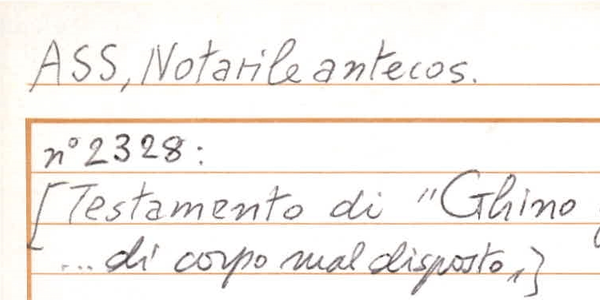 ASS, Notarile antecos.
n° 2328:
[Testamento di "Ghino
... di corpo mal disposto,,]